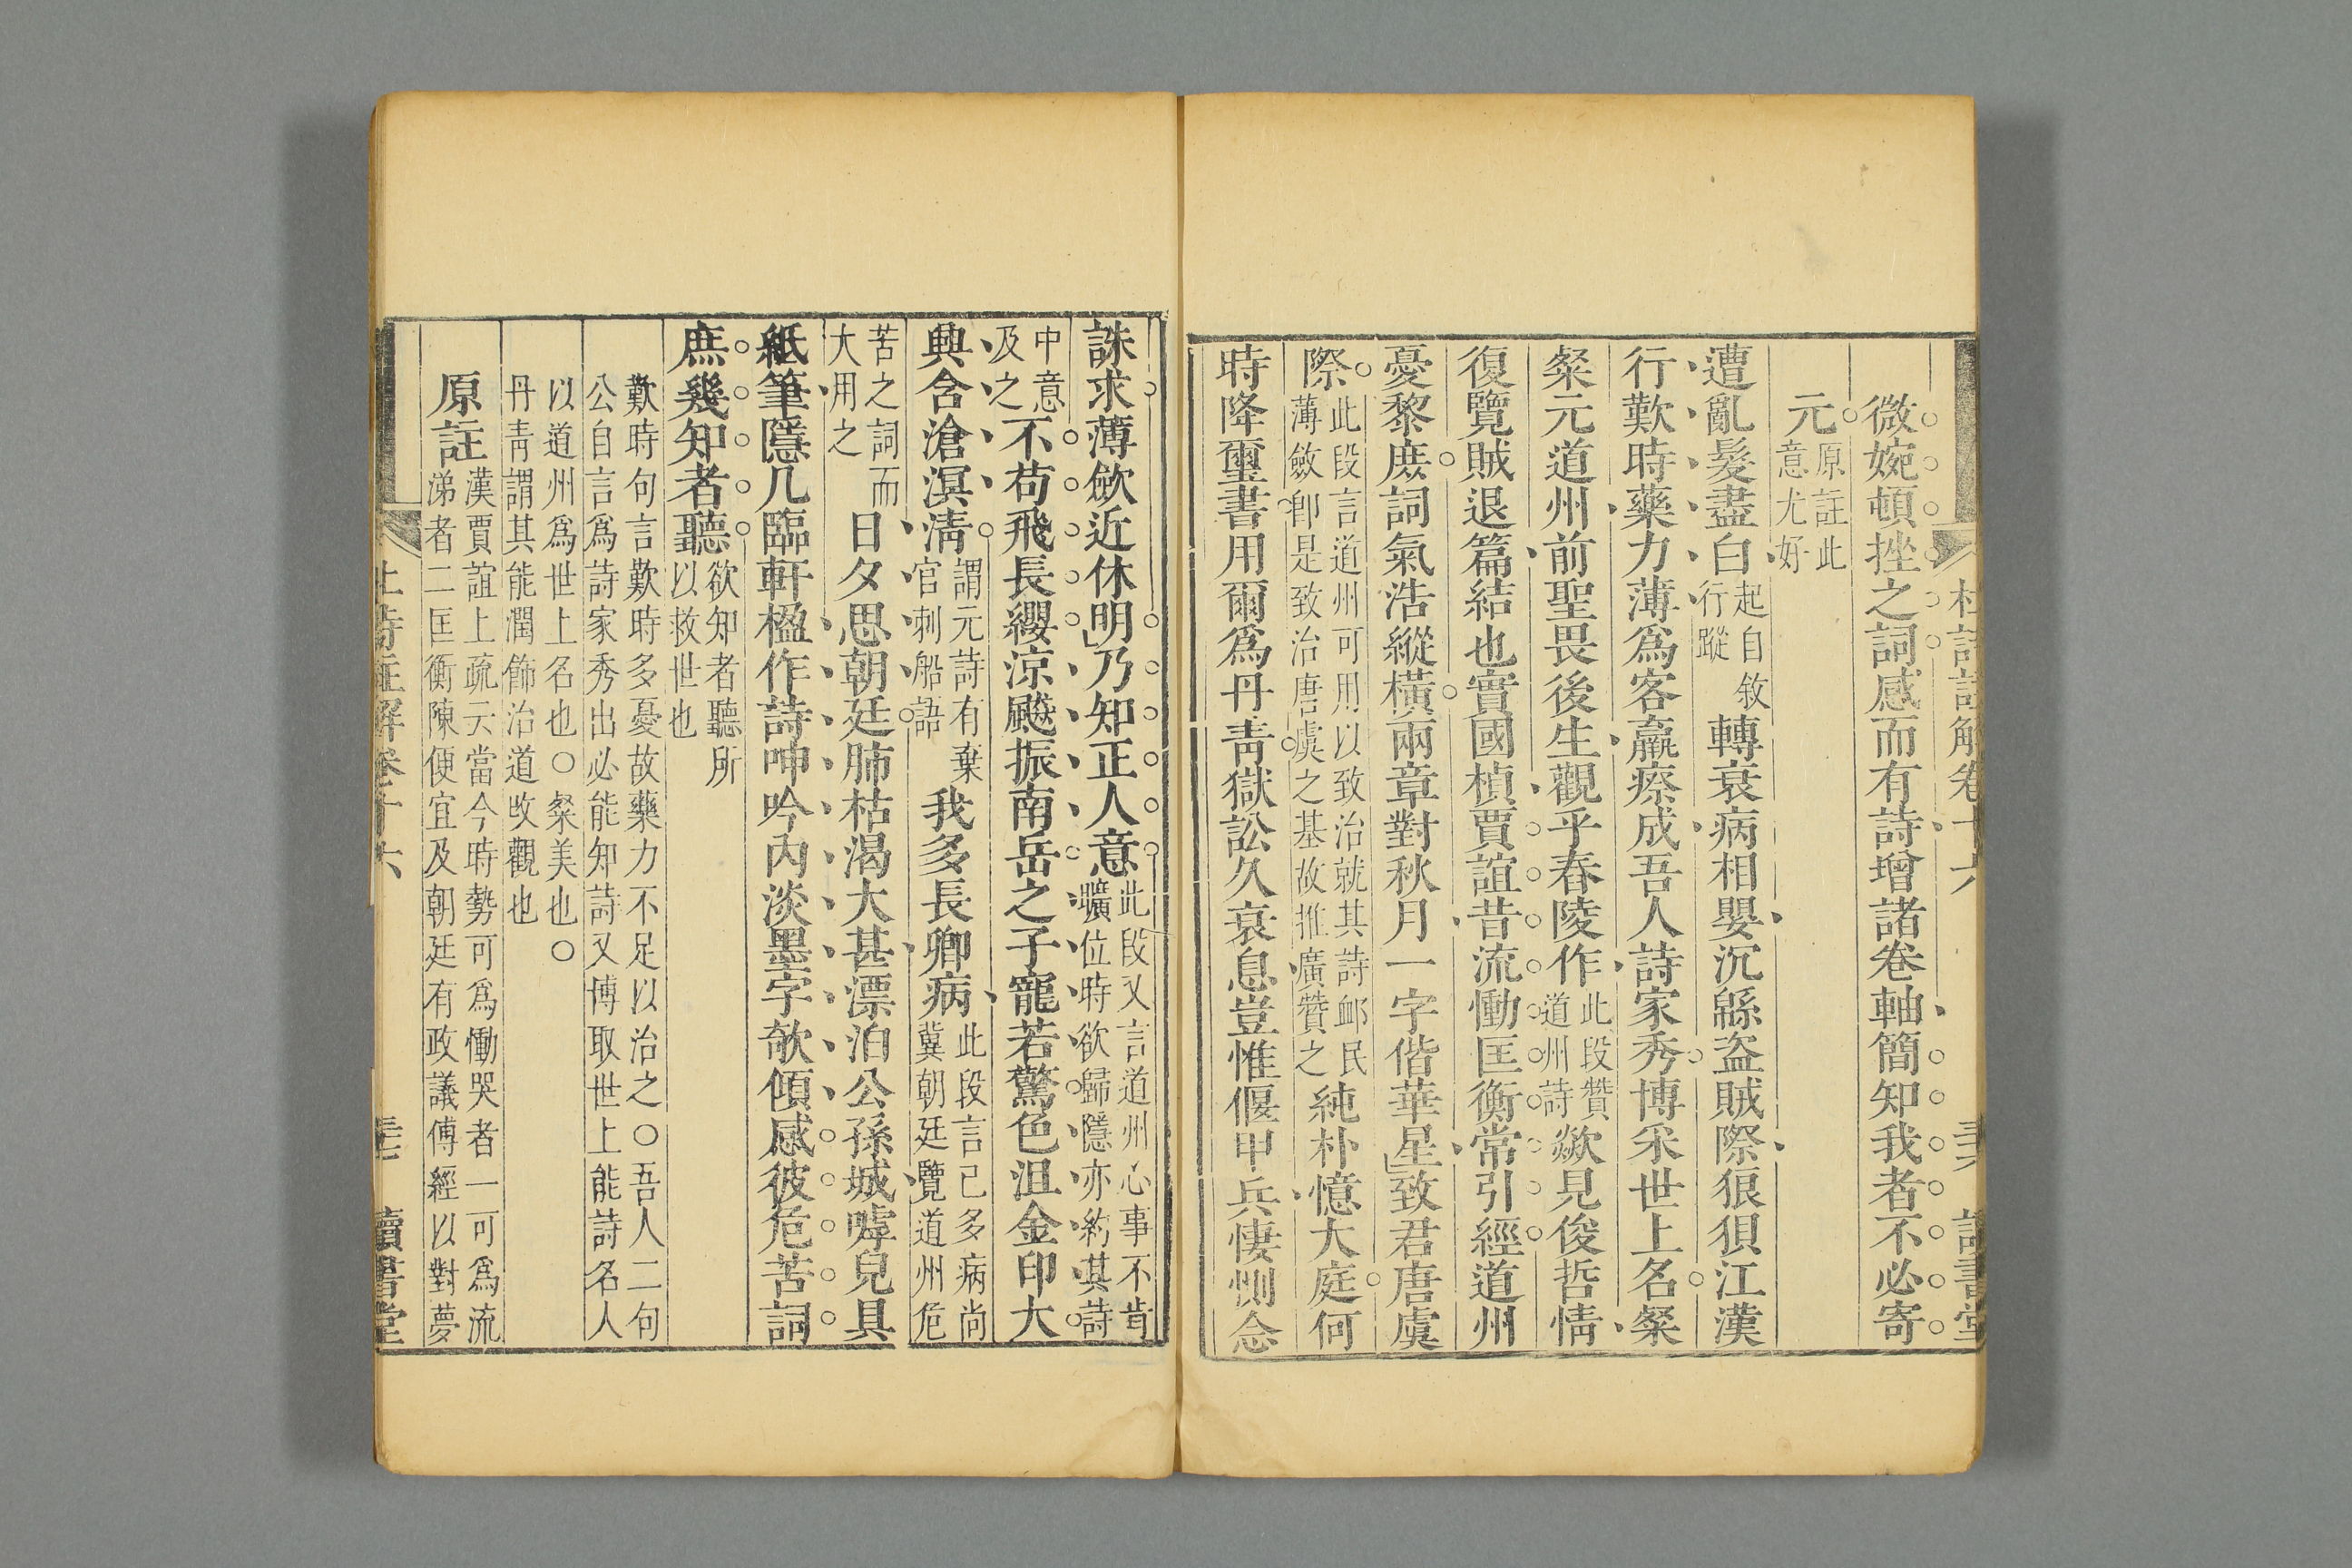 微婉頓挫之詞感而有詩增諸卷軸簡知我者不必寄
元原註此意尤好
遭亂髮盡白起自敘行蹤轉衰病相嬰沉緜盜賊際狼狽江漢
行歎時藥力薄爲客羸瘵成吾人詩家秀博采世上名粲
粲元道州前聖畏後生觀乎舂陵作此段贊道州詩欻見俊哲情
復覽賊退篇結也實國楨賈誼昔流慟匡衡常引經道州
憂黎庶詞氣浩縱橫兩章對秋月一字偕華星致君唐虞
際此段言道州可用以致治就其詩卹民薄斂卽是致治唐虞之基故推廣贊之純朴憶大庭何
時降璽書用爾爲丹青獄訟久衰息豈惟偃甲兵悽惻念
誅求薄歛近休明乃知正人意此段又言道州心事不肯曠位時欲歸隱亦約其詩
中意及之不苟飛長纓涼飈振南岳之子寵若驚色沮金印大
興含滄溟淸謂元詩有棄官刺船語我多長卿病此段言己多病尚冀朝廷覽道州危
苦之詞而大用之日夕思朝廷肺枯渴大甚漂泊公孫城嘑兒具
紙筆隱几臨軒楹作詩呻吟內淡墨字欹傾感彼危苦詞
庶幾知者聽欲知者聽所以救世也
歎時句言歎時多憂故藥力不足以治之○吾人二句
公自言爲詩家秀出必能知詩又博取世上能詩名人
以道州爲世上名也○粲美也○
丹青謂其能潤飾治道攺觀也
原註漢賈誼上疏云當今時勢可爲慟哭者一可爲流涕者二匡衡陳便宜及朝廷有政議傅經以對夢